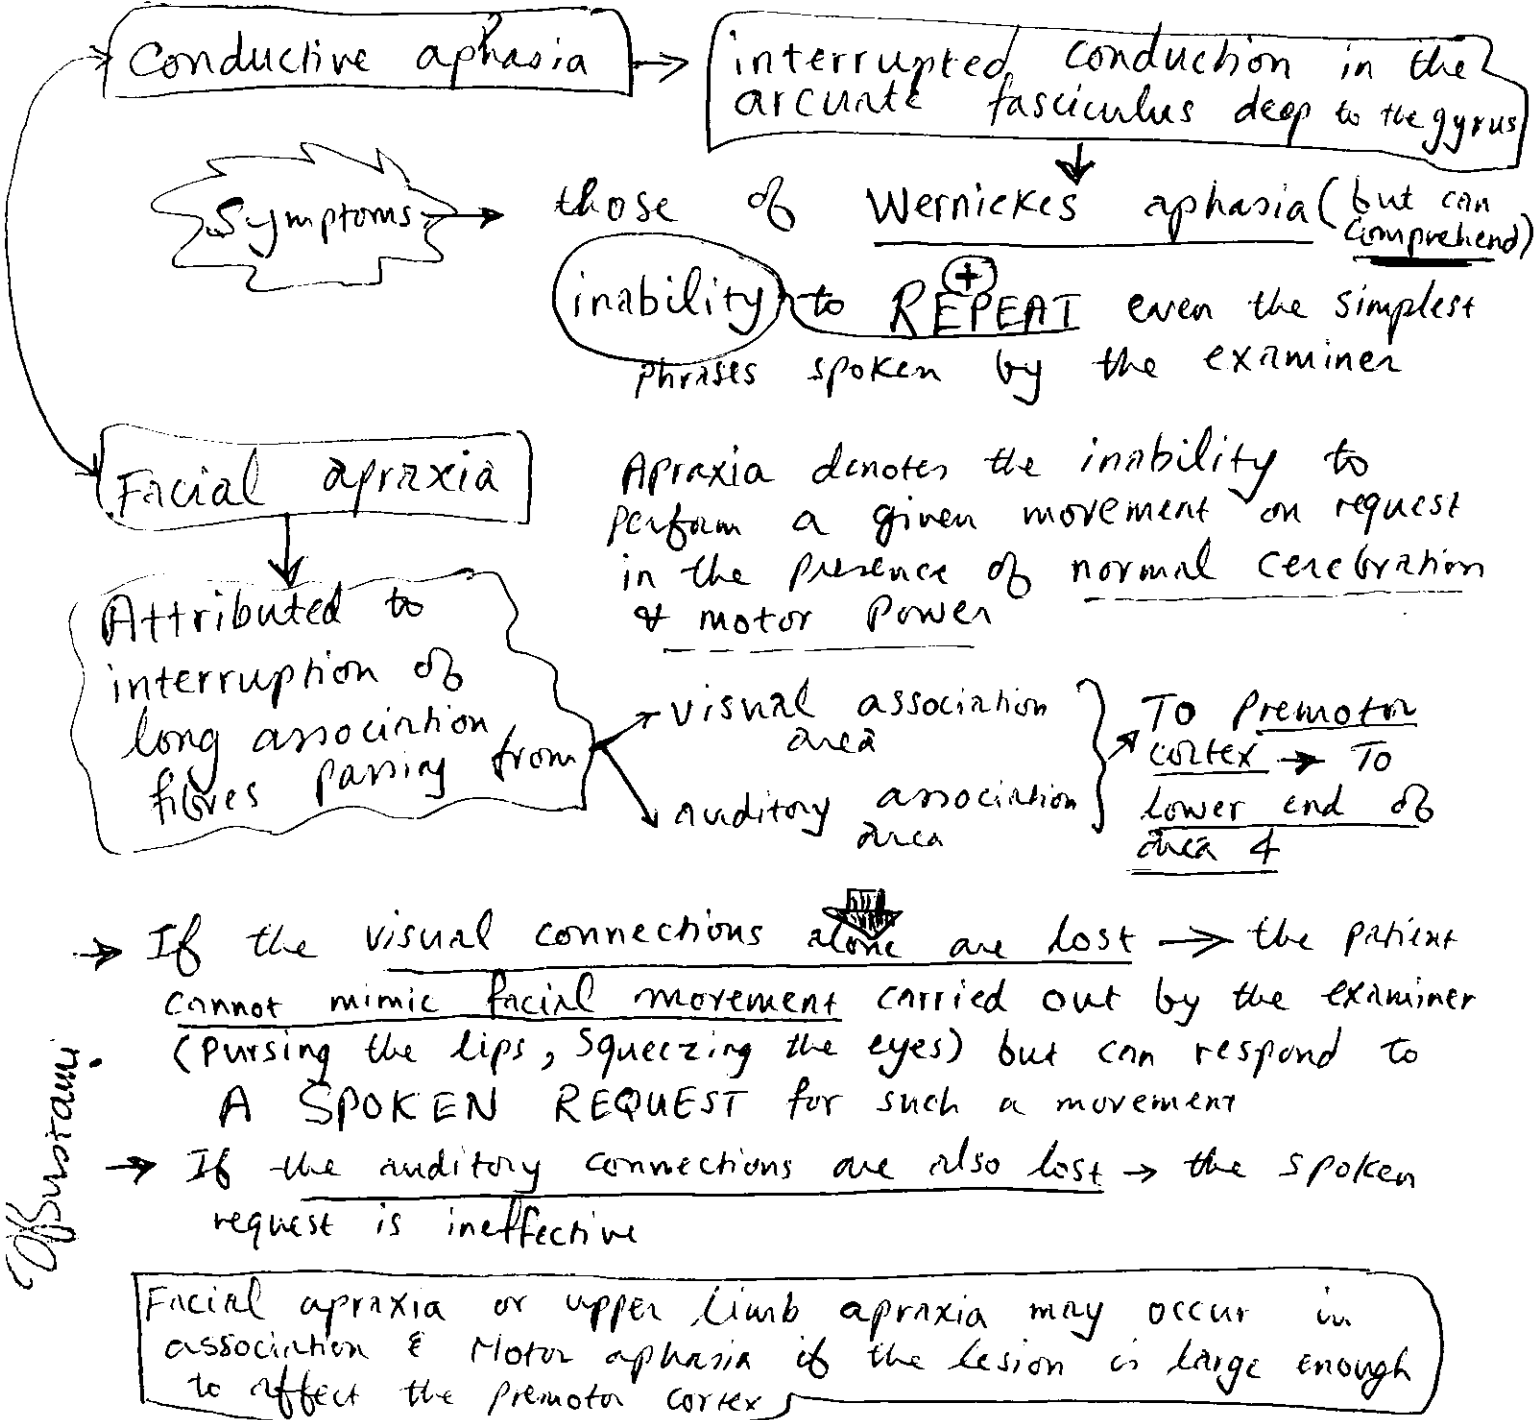 Conductive aphasia → interrupted conduction in the
arcuate fasciculus deep to the gyrus
Symptoms → those of Wernickes aphasia (but can
comprehend)
+
inability to REPEAT even the simplest
phrases spoken by the examiner
Facial apraxia
Apraxia denotes the inability to
perform a given movement on request
in the presence of normal cerebration
& motor power
Attributed to
interruption of
long association
fibres passing from
visual association
area
auditory association
area
To premotor
cortex → To
lower end of
area 4
→ If the visual connections alone are lost → the patient
cannot mimic facial movement carried out by the examiner
(pursing the lips, squeezing the eyes) but can respond to
A SPOKEN REQUEST for such a movement
→ If the auditory connections are also lost → the spoken
request is ineffective
Facial apraxia or upper limb apraxia may occur in
association & Motor aphasia if the lesion is large enough
to affect the premotor cortex